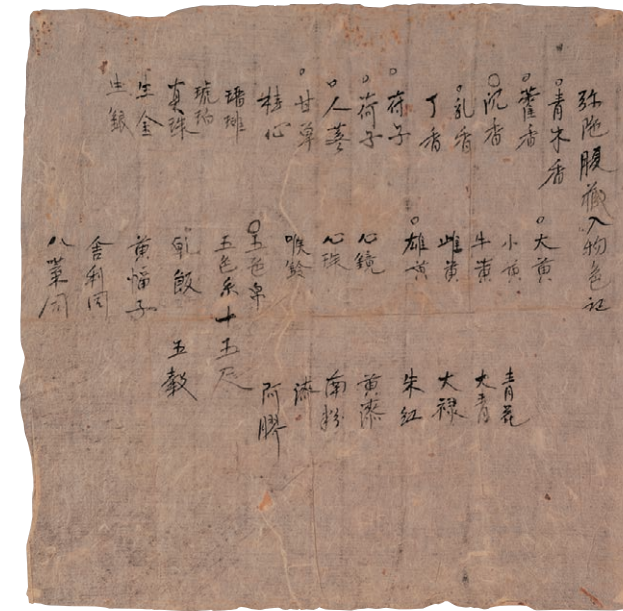 弥陁腹藏入物色記
青木香
藿香
沉香
乳香
丁香
苻子
荷子
人葠
甘草
桂心
瑠璃
琥珀
真珠
生金
生銀
大黄
小黄
牛黄
雌黄
雄黄
心鏡
心珠
喉鈴
五色帛
五色糸十五尺
乹飯
五穀
黄幅子
舎利同
八葉同
青花
大青
大禄
朱紅
黄漆
南粉
漆
阿膠